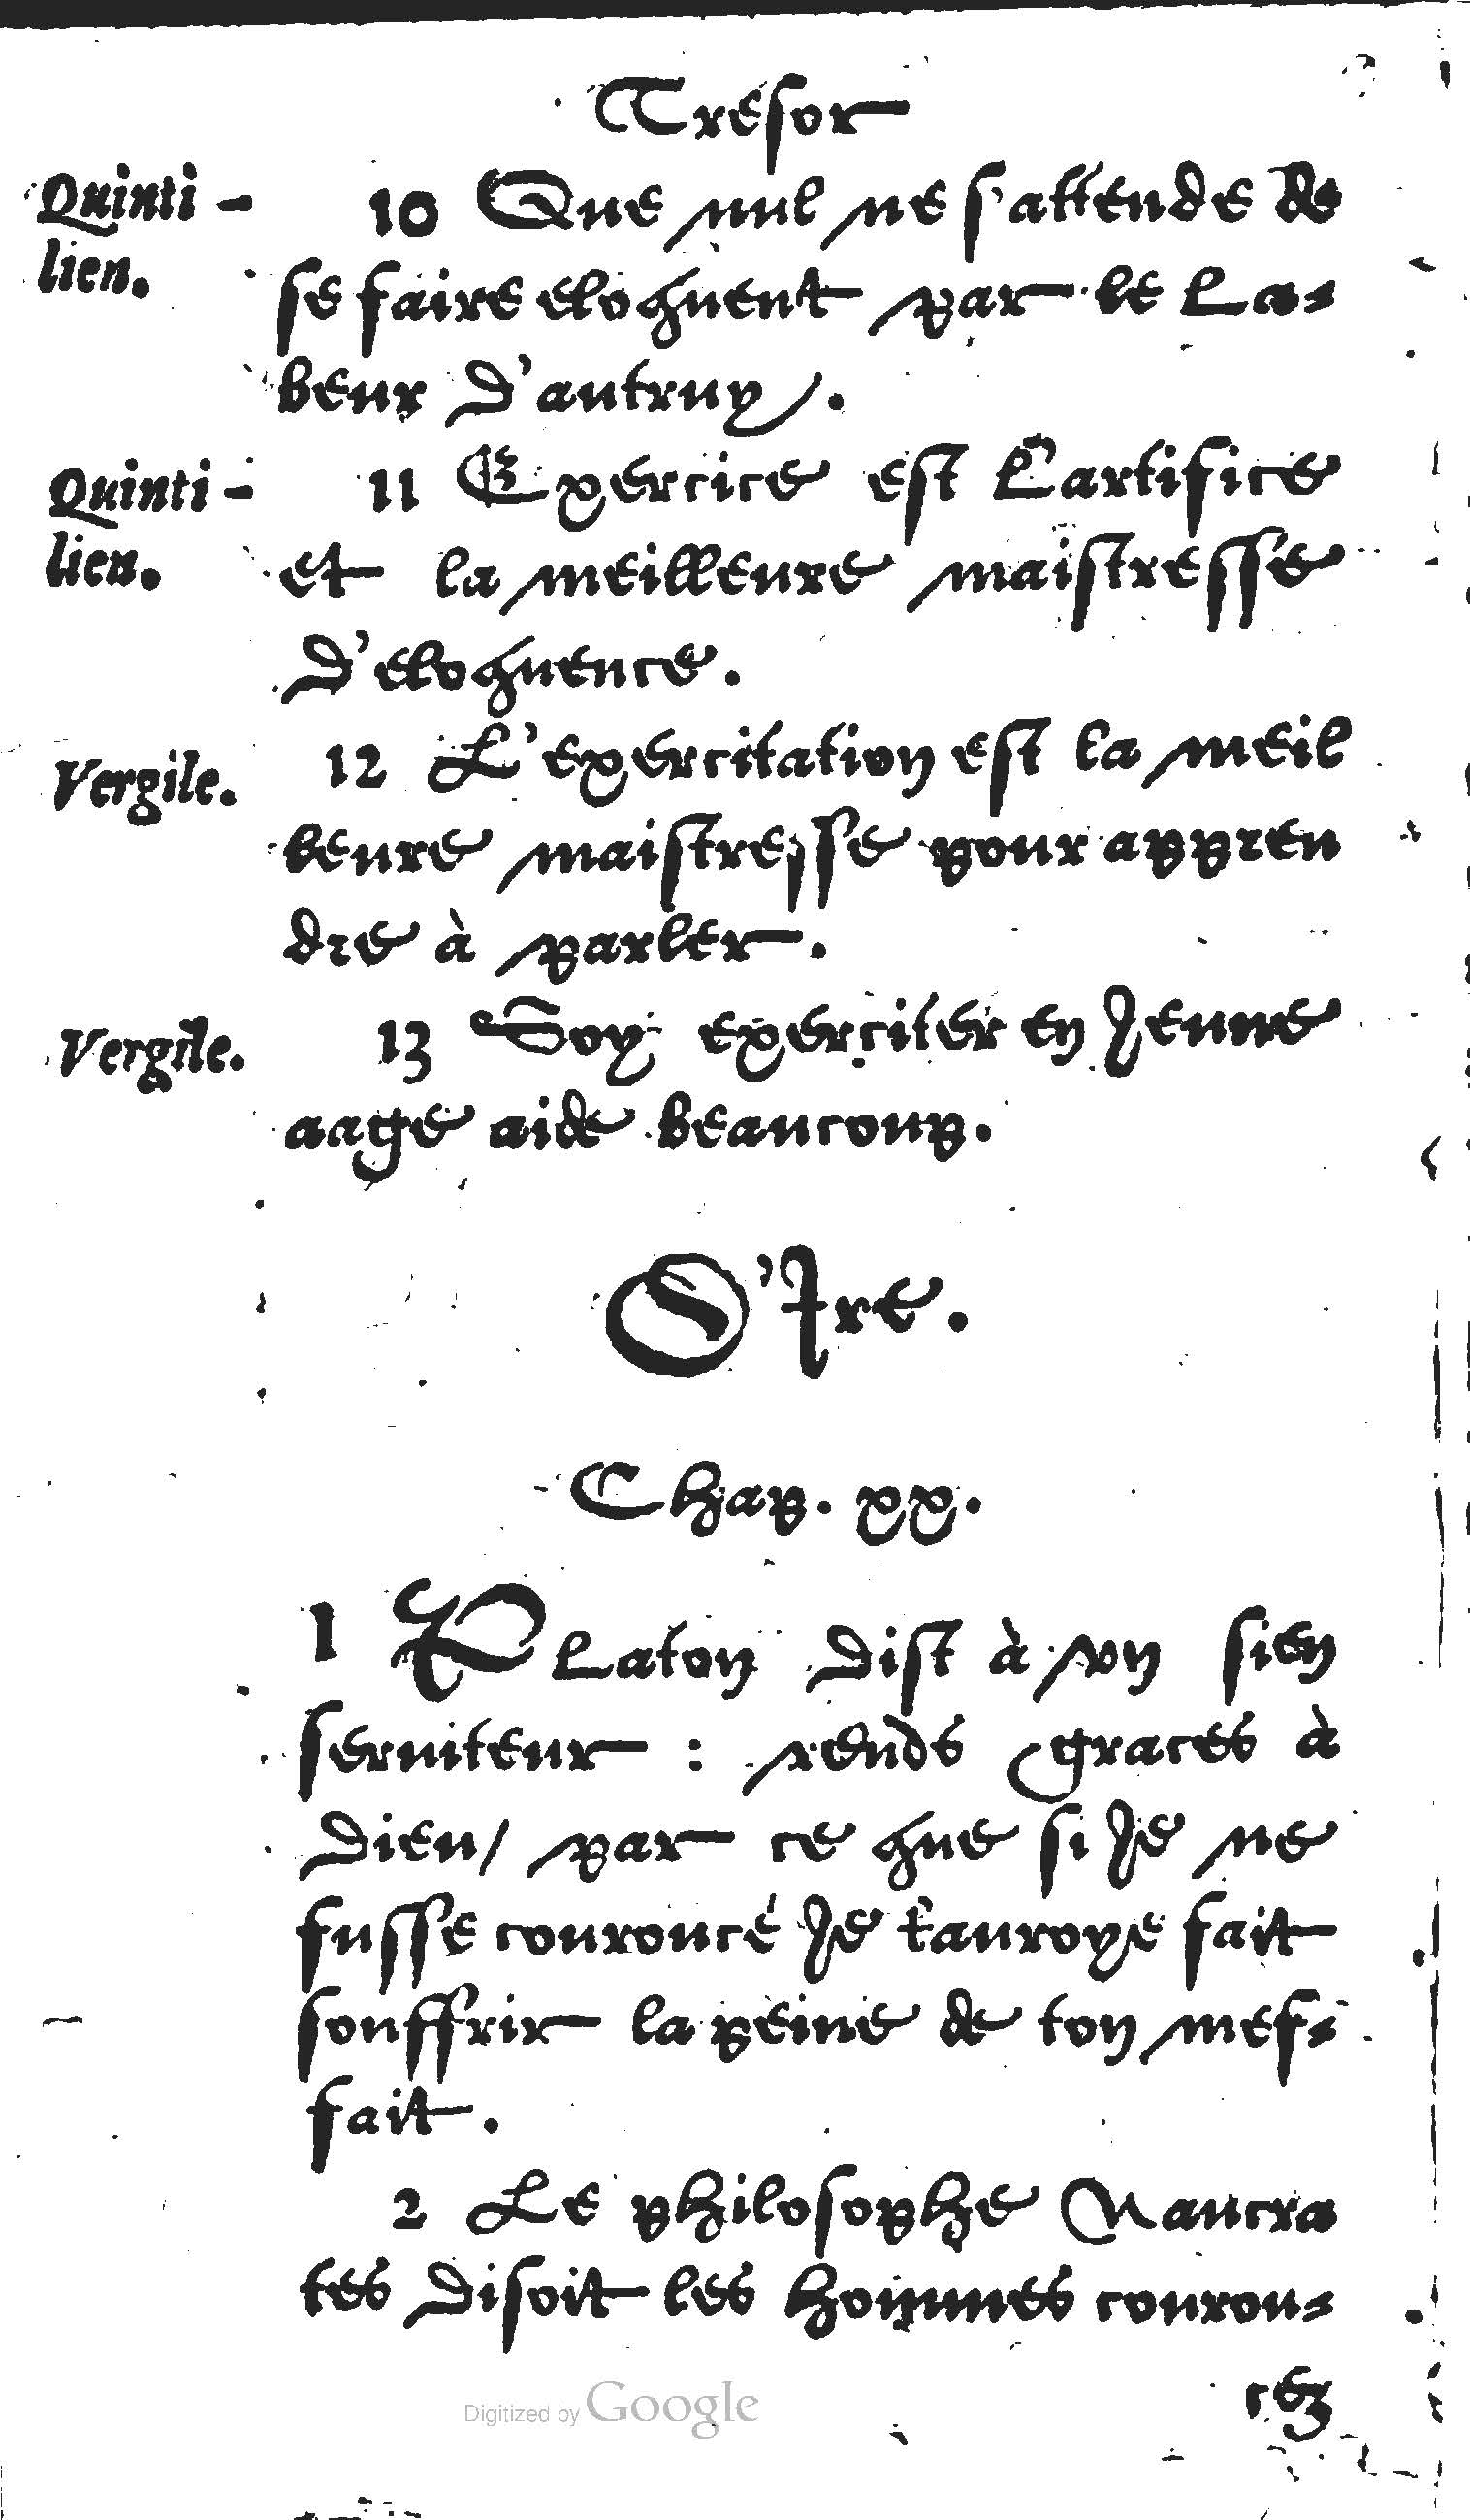 Tresor
Quinti-
lien.
10 Que nul ne s'attende de
se faire eloquent par le la-
beur d'autruy.
Quinti-
lien.
11 Exercice est l'artifice
et la meilleure maistresse
d'eloquence.
Vergile.
12 L'exercitation est la meil
leure maistresse pour appren
dre à parler.
Vergile.
13 Soy exerciter en jeune
aage aide beaucoup.
D'Ire.
Chap. xx.
1 Platon dist à vn sien
seruiteur : rends graces à
Dieu/ par ce que si je ne
fusse courroucé je t'auroye fait
souffrir la peine de ton mef-
fait.
2 Le philosophe Naucra
tes disoit les hommes courou-
cez
Digitized by Google